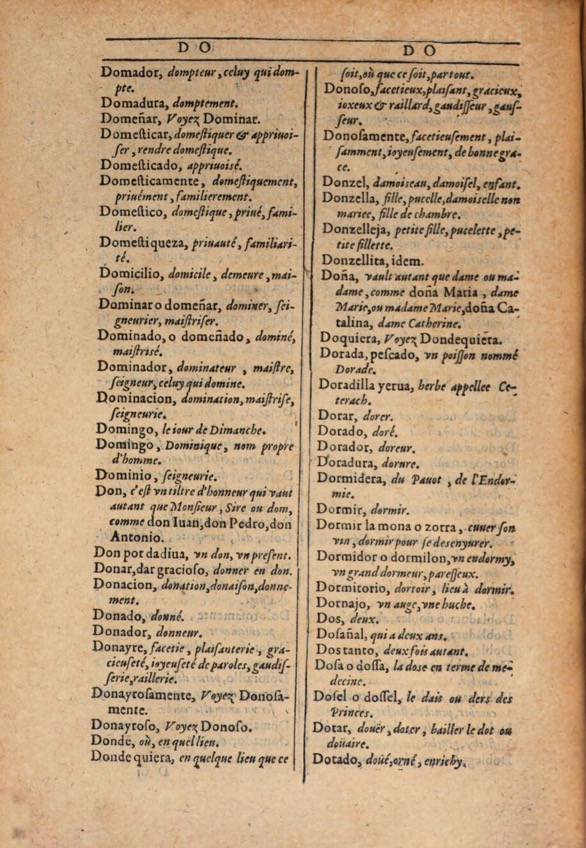 DO
DO
Domador, dompteur, celuy qui dom-
pte.
Domadura, domptement.
Domeñar, Voyez Dominar.
Domesticar, domestiquer & apprivoi-
ser, rendre domestique.
Domesticado, apprivoisé.
Domesticamente, domestiquement,
privément, familierement.
Domestico, domestique, privé, fami-
lier.
Domestiqueza, privauté, familiari-
té.
Domicilio, domicile, demeure, mai-
son.
Dominar o domeñar, dominer, sei-
gneurier, maistriser.
Dominado, o domeñado, dominé,
maistrisé.
Dominador, dominateur, maistre,
seigneur, celuy qui domine.
Dominacion, domination, maistrise,
seigneurie.
Domingo, le iour de Dimanche.
Domingo, Dominique, nom propre
d'homme.
Dominio, seigneurie.
Don, c'est vn tiltre d'honneur qui vaut
autant que Monsieur, Sire ou dom,
comme don Iuan, don Pedro, don
Antonio.
Don por dadiua, vn don, vn present.
Donar, dar gracioso, donner en don.
Donacion, donation, donaison, donne-
ment.
Donado, donné.
Donador, donneur.
Donayre, facetie, plaisanterie, gra-
cieuseté, ioyeuseté de paroles, gaudis-
serie, raillerie.
Donayrosamente, Voyez Donosa-
mente.
Donayroso, Voyez Donoso.
Donde, où, en quel lieu.
Donde quiera, en quelque lieu que ce
soit, où que ce soit, partout.
Donoso, facetieux, plaisant, gracieux,
ioxeux & raillard, gaudisseur, gaus-
seur.
Donosamente, facetieusement, plai-
samment, ioyeusement, de bonne gra-
ce.
Donzel, damoiseau, damoisel, enfant.
Donzella, fille, pucelle, damoiselle non
mariee, fille de chambre.
Donzelleja, petite fille, pucelette, pe-
tite fillette.
Donzellita, idem.
Doña, vault autant que dame ou ma-
dame, comme doña Maria, dame
Marie, ou madame Marie, doña Ca-
talina, dame Catherine.
Doquiera, Voyez Dondequiera.
Dorada, pescado, vn poisson nommé
Dorade.
Doradilla yerua, herbe appellee Ce-
terach.
Dorar, dorer.
Dorado, doré.
Dorador, doreur.
Doradura, dorure.
Dormidera, du Pauot, de l'Endor-
mie.
Dormir, dormir.
Dormir la mona o zorra, cuuer son
vin, dormir pour se desenyurer.
Dormidor o dormilon, vn endormy,
vn grand dormeur, paresseux.
Dormitorio, dortoir, lieu à dormir.
Dornajo, vn auge, vne huche.
Dos, deux.
Dosañal, qui a deux ans.
Dos tanto, deux fois autant.
Dosa o dossa, la dose en terme de me-
decine.
Dosel o dossel, le dais ou ders des
Princes.
Dotar, douër, doter, bailler le dot ou
douaire.
Dotado, doüé, orné, enrichy.